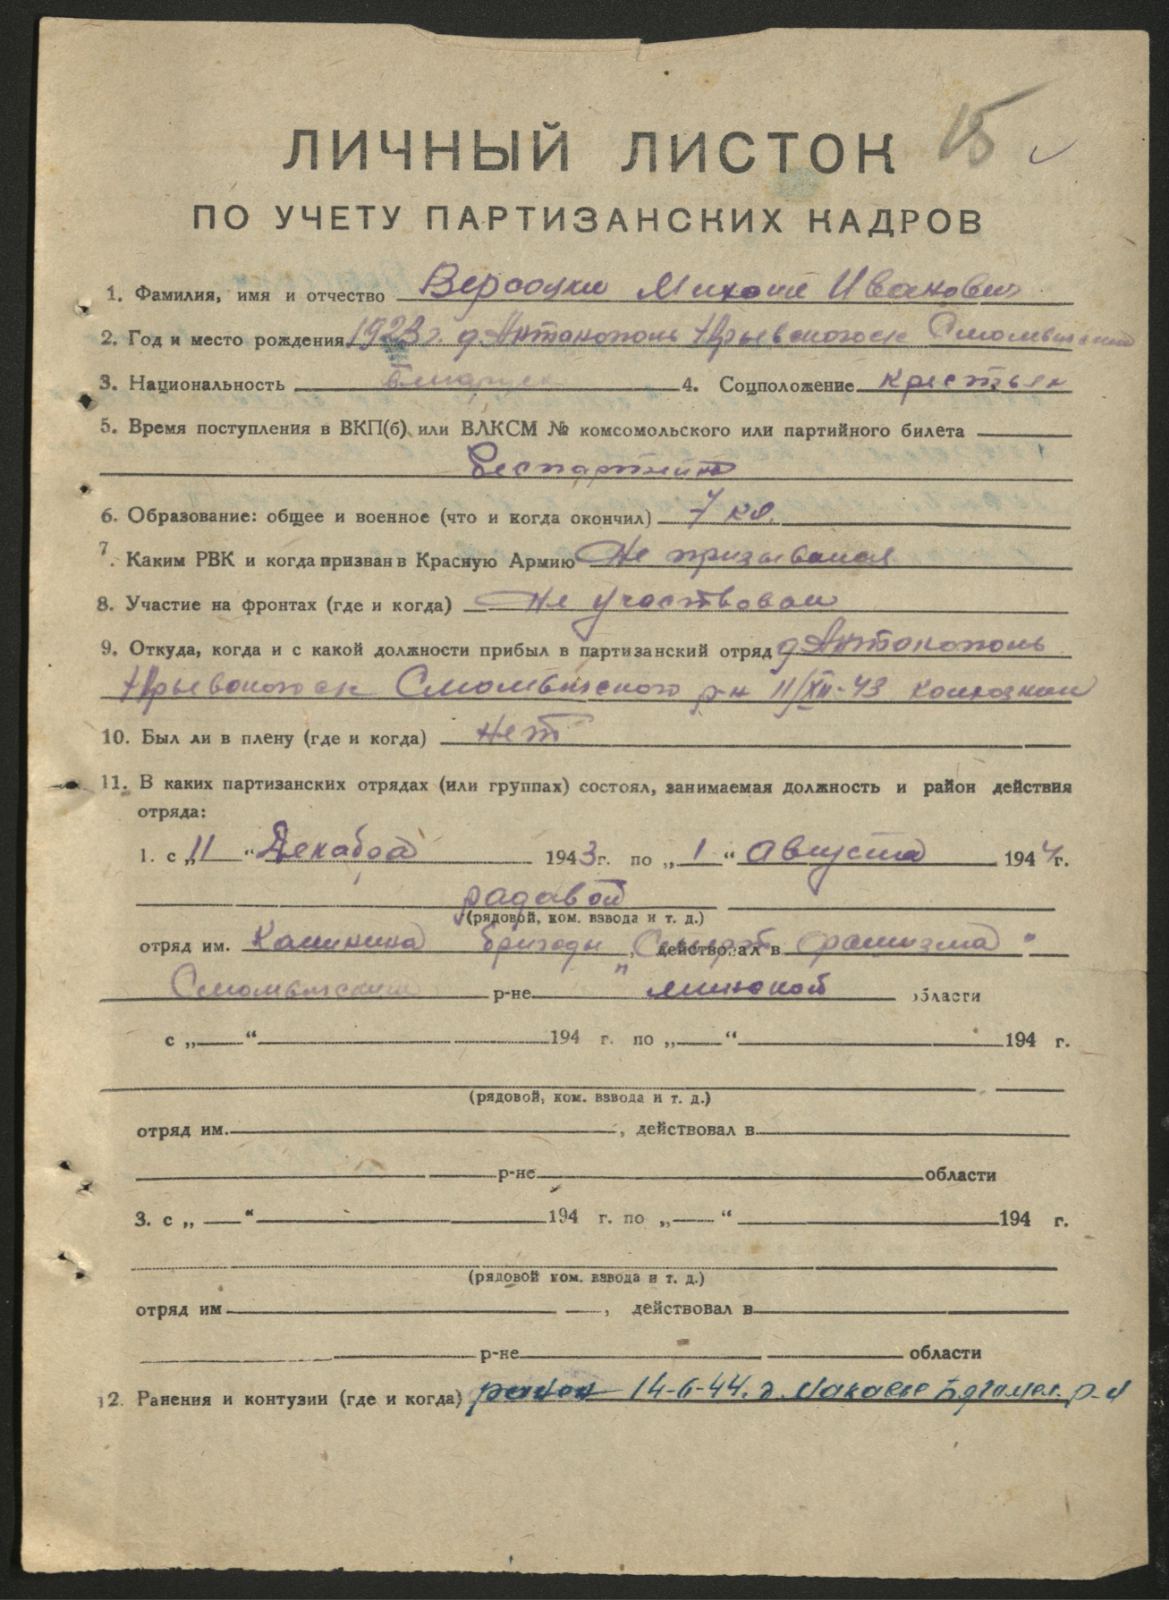 15
ЛИЧНЫЙ ЛИСТОК
ПО УЧЕТУ ПАРТИЗАНСКИХ КАДРОВ
1. Фамилия, имя и отчество Версоцки Михаил Иванович
2. Год и место рождения 1923 г. д. Антонополь Юрьевского с/с
3. Национальность белорус 4. Соцположение крестьян
5. Время поступления в ВКП(б) или ВЛКСМ № комсомольского или партийного билета
беспартийн
6. Образование: общее и военное (что и когда окончил) 7 кл.
7. Каким РВК и когда призван в Красную Армию Не призывался
8. Участие на фронтах (где и когда) Не участвовал
9. Откуда, когда и с какой должности прибыл в партизанский отряд д Антонополь
Юрьевского с/с Смолевичского р-н 11/XII-43 колхозник
10. Был ли в плену (где и когда) Нет
11. В каких партизанских отрядах (или группах) состоял, занимаемая должность и район действия
отряда:
1. с „11“ Декабря 1943 г. по „1“ Августа 1944 г.
радавой
(рядовой, ком. взвода и т. д.)
отряд им. Калинина бригады „Смерть, действовал в фашизма"
Смолевичский р-не минской области
с „ “ 194 г. по „ “ 194 г.
(рядовой, ком. взвода и т. д.)
отряд им. , действовал в
р-не области
3. с „ “ 194 г. по „ “ 194 г.
(рядовой ком. взвода и т. д.)
отряд им , действовал в
р-не области
12. Ранения и контузии (где и когда) ранен 14-6-44. д. Бегомл. р-н